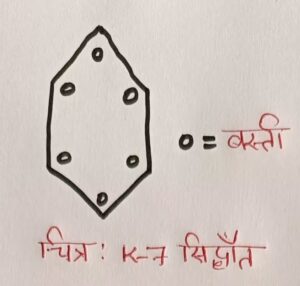 ० = बस्ती
चित्र : K-7 सिद्धाँत